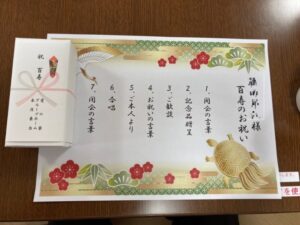 様
百寿のお祝い
1、開会の言葉
2、記念品贈呈
3、ご歓談
4、お祝いの言葉
5、ご本人より
6、合唱
7、閉会の言葉
祝 百寿